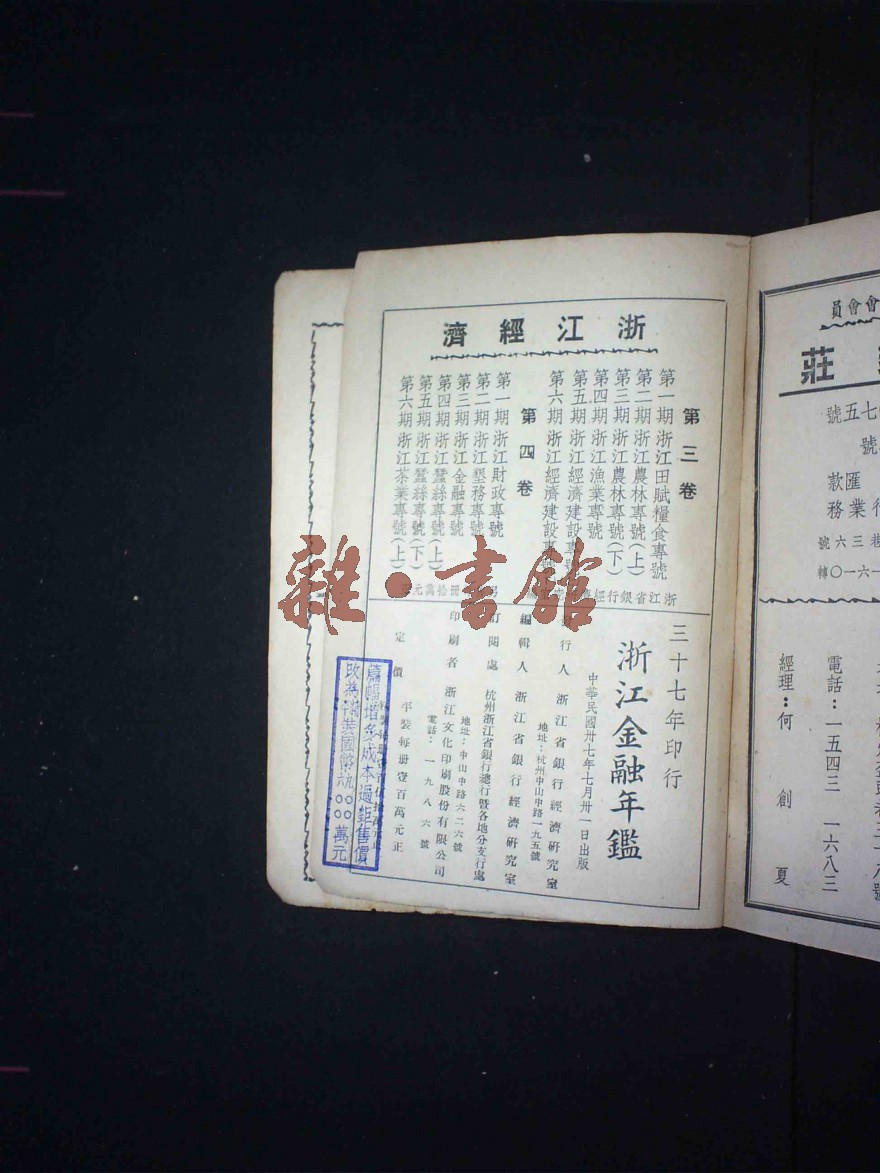 浙江經濟
第三卷
第一期 浙江田賦糧食專號
第二期 浙江農林專號(上)
第三期 浙江農林專號(下)
第四期 浙江漁業專號
第五期 浙江經濟建設專
第六期 浙江經濟建設專
第四卷
第一期 浙江財政專號
第二期 浙江墾務專號
第三期 浙江金融專號
第四期 浙江蠶絲專號(上)
第五期 浙江蠶絲專號(下)
第六期 浙江茶業專號(上)
浙江省銀行經
冊拾萬元
三十七年印行
浙江金融年鑑
中華民國卅七年七月卅一日出版
行人 浙江省銀行經濟研究室
地址:杭州中山中路一九五號
編輯人 浙江省銀行經濟研究室
訂閱處 杭州浙江省銀行總行暨各地分支行處
印刷者 浙江文化印刷股份有限公司
地址:中山中路六二六號
電話:一九八六號
定價 平裝每冊壹百萬元正
篇幅增多成本過鉅售價
改為 裝國幣 〇〇萬元
雜·書館
會會員
莊
七五號
號
匯款
行業務
巷三六號
一六一〇轉
電話:一五四三 一六八三
經理:何創夏